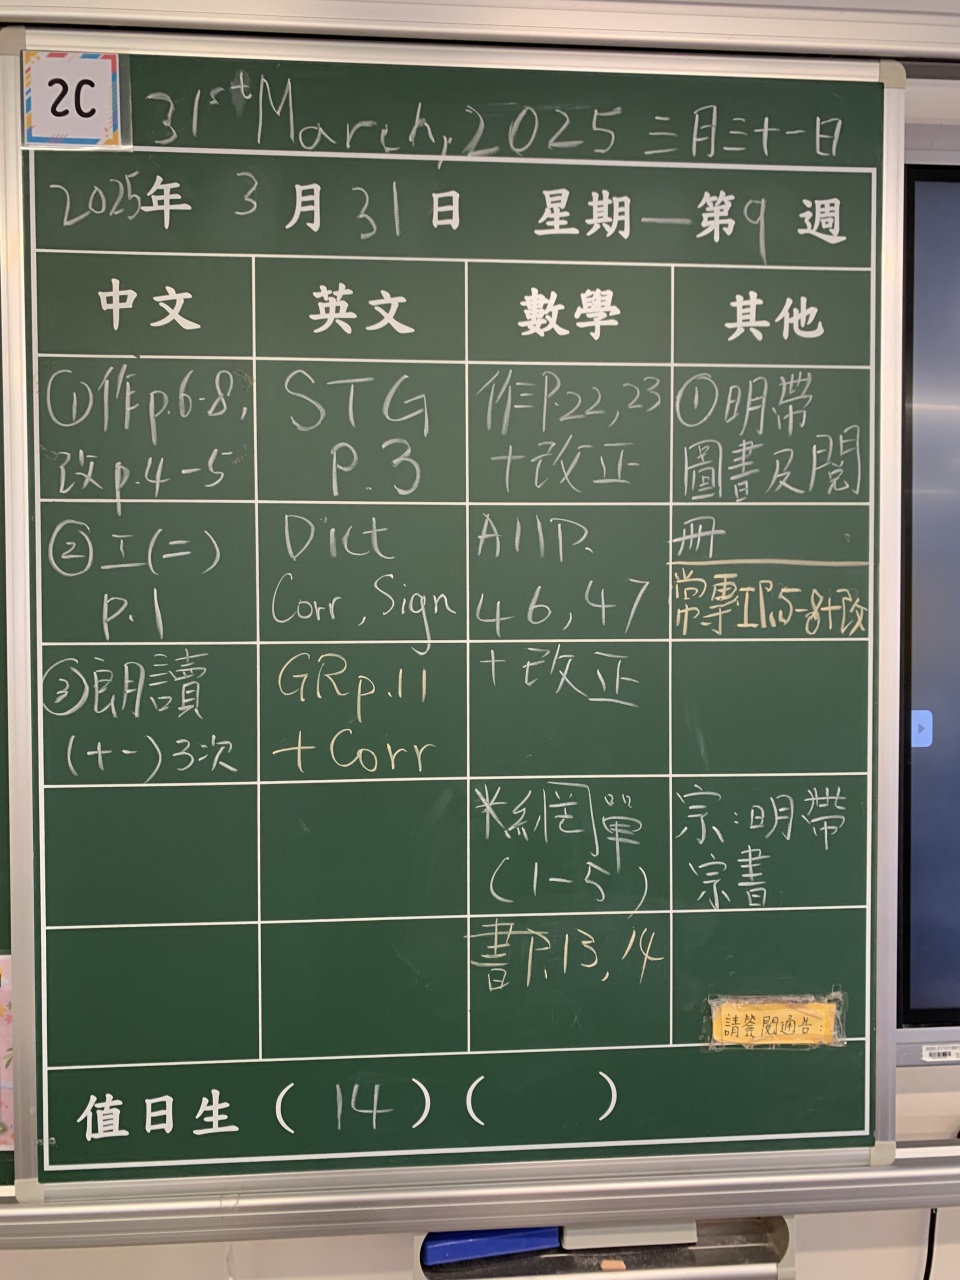 2C
31st March, 2025 三月三十一日
2025年 3 月 31 日 星期一第9週
中文 英文 數學 其他
①作p.6-8,
改p.4-5
STG
p.3
作P.22,23
+改正
①明帶
圖書及閱
②工(二)
p.1
Dict
Corr, Sign
A11P.
46,47
冊
常專工P.5-8+改
③朗讀
(十一)3次
GRp.11
+Corr
+改正
*網單
(1-5)
宗:明帶
宗書
書P.13,14
請簽閱通告
值日生(14)( )